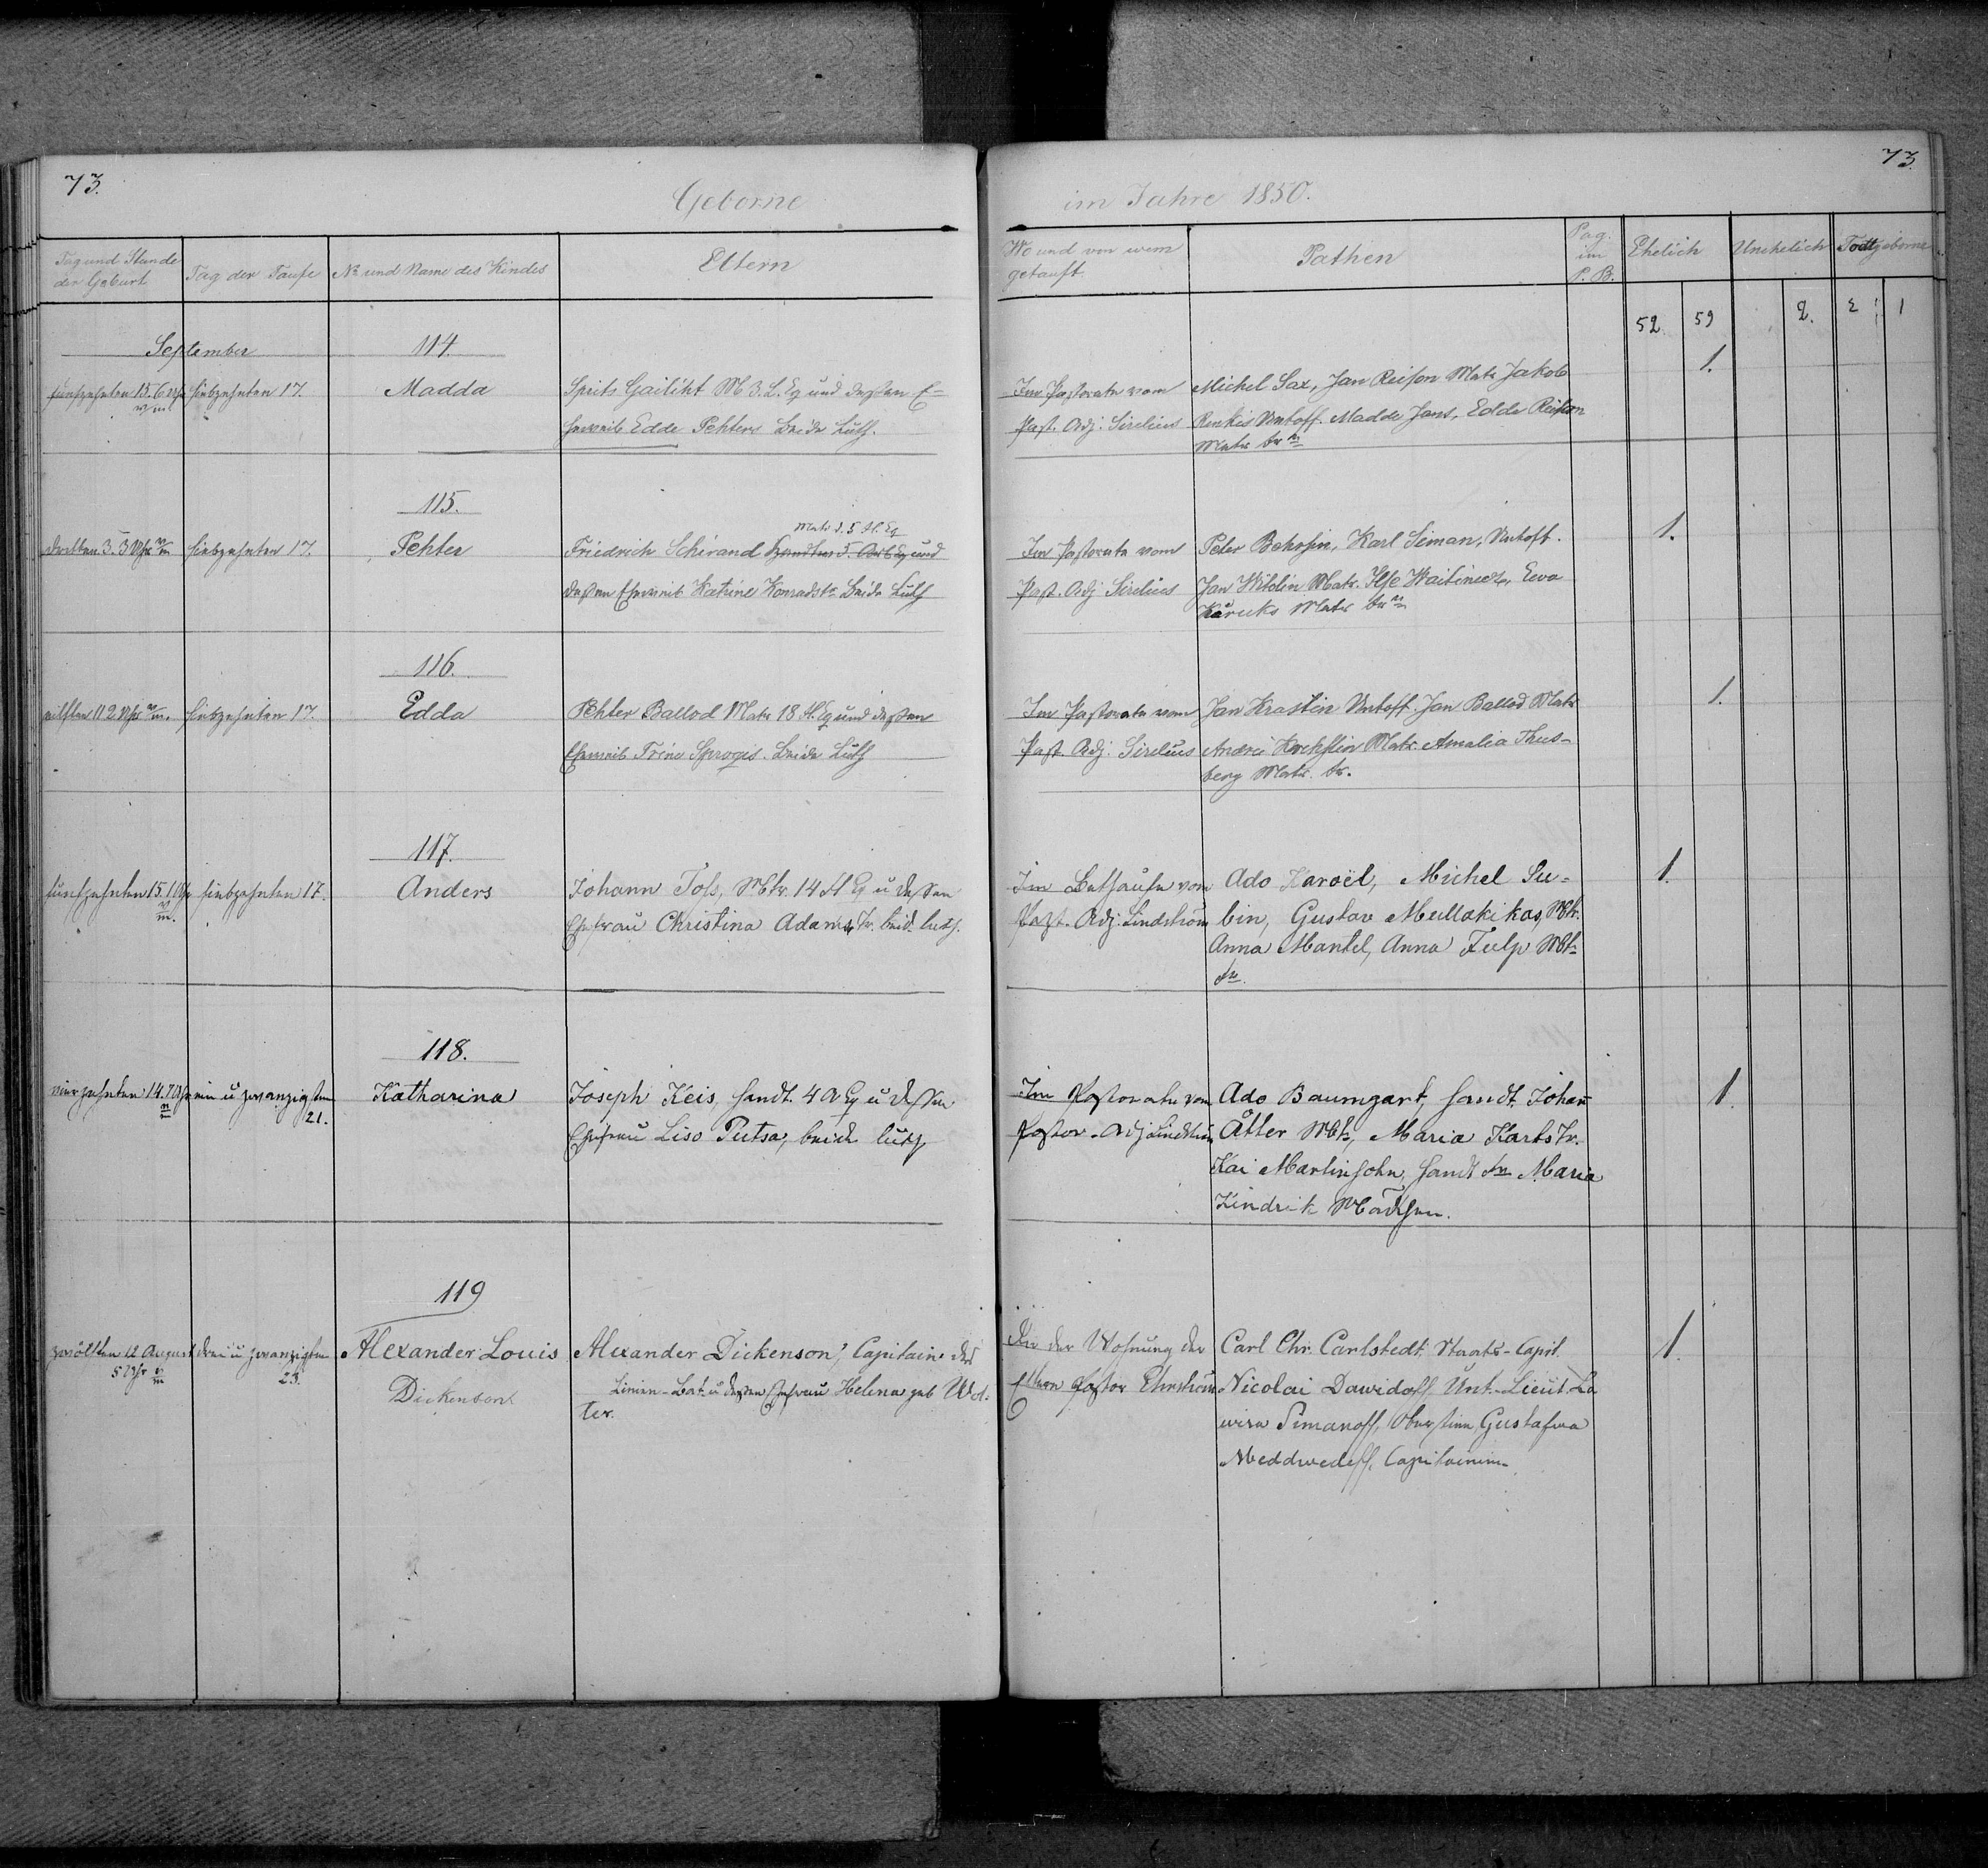 73.
Geborne
im Jahre 1850.
73.
Tag und Stunde der Geburt
Tag der Taufe
No und Name des Kindes
Eltern
Wo und von wem getauft
Pathen
Pag. im P. B.
Ehelich
Unehelich
Todtgeborne
52 59 2. 2 1
September
114.
fünfzehnten 15. 6 Uhr
siebzehnten 17.
Madda
Sprits Gailiht M 3. L. Eq und dessen E-
heweib Edde Pehters beide luth.
Im Pastorate vom
Past. Adj. Sirelius
Michel Sax, Jan Reison Matr Jakob
Renkis Unthoff. Madde Jans, Edde Reison
Matr
1.
115.
dritten 3. 3 Uhr
siebzehnten 17.
Pehter
Matr d. 5 Fl. Eq
Friedrich Schirand 5. Arb Eq und
dessen Eheweib Katrine Konradstr beide Luth
Im Pastorate vom
Past. Adj Sirelius
Peter Behrsin, Karl Siman, Unthoff.
Jan Witolin Matr. Ilse Waitineek, Ewa
Kåruks Matr
1.
116.
eilften 11 2 Uhr
siebzehnten 17.
Edda
Pehter Ballod Matr 18 Fl. Eq und dessen
Eheweib Trine Sprogis. beide Luth
Im Pastorate vom
Past. Adj. Sirelius
Jan Krastin Unthoff. Jan Ballod Matr
Andrei Matr. Amalia Thus-
berg Matr. tr.
1.
117.
fünfzehnten 15. 1 Uhr
siebzehnten 17.
Anders
Johann Toss, Mtr. 14 Fl Eq u dessen
Ehefrau Christina Adams Tr. beid. luth.
Im Bethause vom
Past. Adj. Lindström
Ado Karoel, Michel Su-
bin, Gustav Mullakikas, Mtr.
Anna Mantel, Anna Tulp Mtr
1.
118.
vierzehnten 14. 7 Uhr
ein u zwanzigsten
21.
Katharina
Joseph Keis, Handl. 4 A Eq u dessen
Ehefrau Liso Putsa, beide luth
Im Pastorate vom
Pastor-Adj Lindström
Ado Baumgart, Handl. Johan
Åtter Mtr, Maria Karls Tr.
Kai Martinsohn, Handl Maria
Kindrik Mädchen.
1
119
zwölften 12 August
5 Uhr
drei u zwanzigsten
23.
Alexander Louis
Dickenson
Alexander Dickenson, Capitain des
Linien-Bat. u dessen Ehefrau Helena geb Wol-
ter.
In der Wohnung der
Eltern Pastor Ehrström
Carl Chr. Carlstedt, Staats-Capit.
Nicolai Dawidoff, Unt.-Lieut. La
wisa Simanoff, Oberstinn, Gustafwa
Meddwedeff, Capitainin.
1.